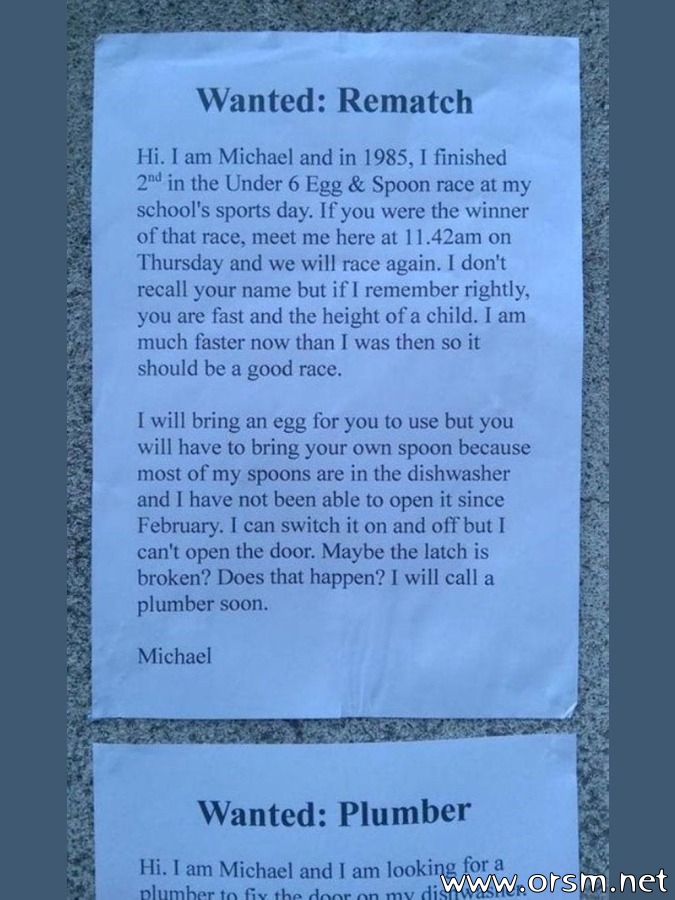 Wanted: Rematch
Hi. I am Michael and in 1985, I finished
2nd in the Under 6 Egg & Spoon race at my
school's sports day. If you were the winner
of that race, meet me here at 11.42am on
Thursday and we will race again. I don't
recall your name but if I remember rightly,
you are fast and the height of a child. I am
much faster now than I was then so it
should be a good race.
I will bring an egg for you to use but you
will have to bring your own spoon because
most of my spoons are in the dishwasher
and I have not been able to open it since
February. I can switch it on and off but I
can't open the door. Maybe the latch is
broken? Does that happen? I will call a
plumber soon.
Michael
Wanted: Plumber
Hi. I am Michael and I am looking for a
plumber to fix the door on my dishwasher
www.orsm.net